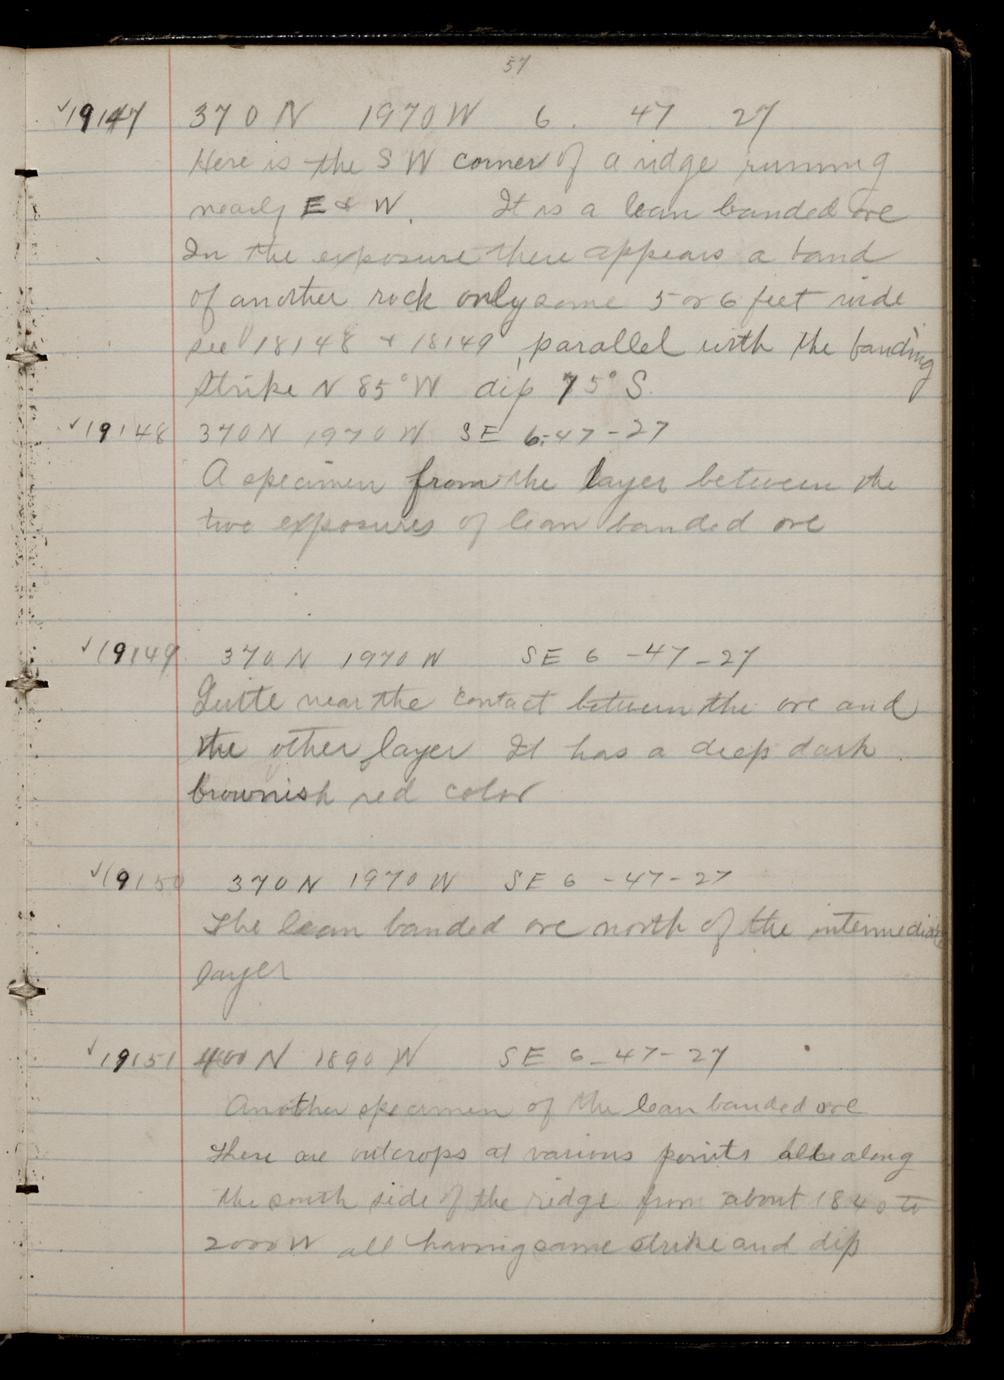 57
✓19147 370 N 1970 W 6. 47 27
Here is the S W corner of a ridge running
nearly E & W. It is a lean banded ore
In the exposure there appears a band
of another rock only some 5 or 6 feet wide
see 18148 + 18149, parallel with the banding
Strike N 85° W dip 75° S.
✓19148 370 N 1970 W SE 6-47-27
A specimen from the layer between the
two exposures of lean banded ore
✓19149 370 N 1970 W SE 6-47-27
Quite near the contact between the ore and
the other layer It has a deep dark
brownish red color
✓19150 370 N 1970 W SE 6-47-27
The lean banded ore north of the intermediate
layer
✓19151 400 N 1890 W SE 6-47-27
Another specimen of the lean banded ore
There are outcrops at various points along
the south side of the ridge from about 1840 to
2000 W all having same strike and dip